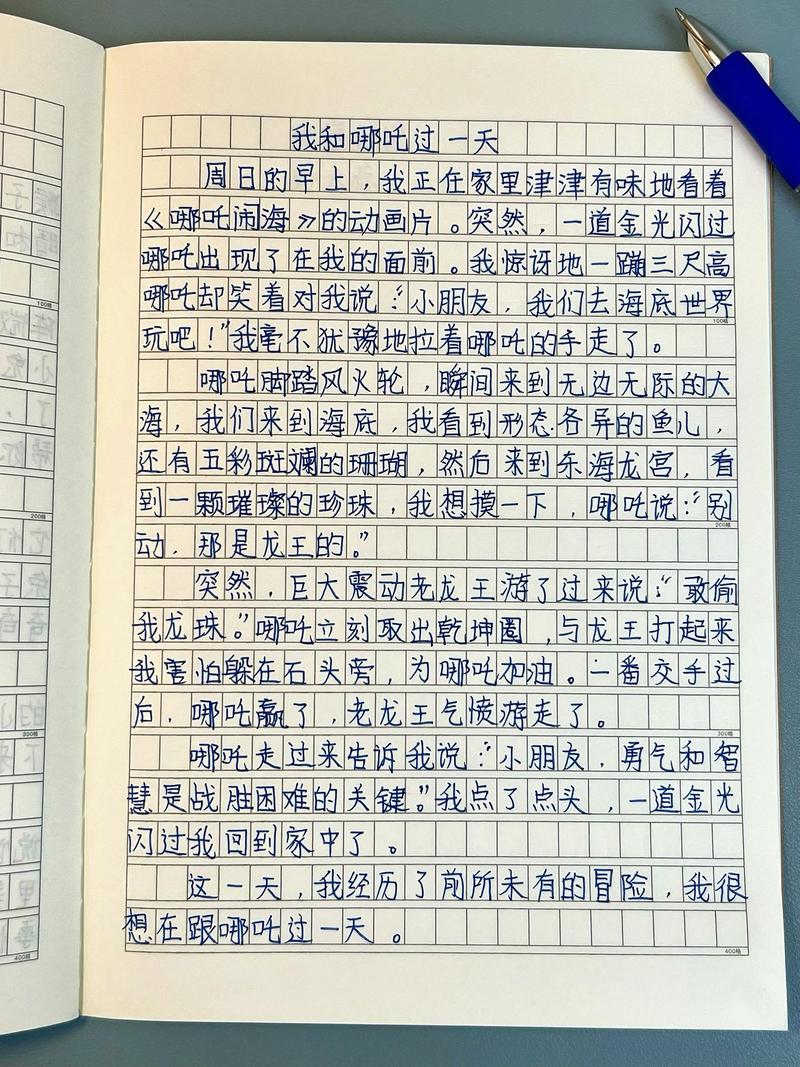 我和哪吒过一天
周日的早上，我正在家里津津有味地看着
《哪吒闹海》的动画片。突然，一道金光闪过
哪吒出现了在我的面前。我惊讶地一蹦三尺高
哪吒却笑着对我说：“小朋友，我们去海底世界
100格
玩吧！”我毫不犹豫地拉着哪吒的手走了。
哪吒脚踏风火轮，瞬间来到无边无际的大
海，我们来到海底，我看到形态各异的鱼儿，
还有五彩斑斓的珊瑚，然后来到东海龙宫，看
到一颗璀璨的珍珠，我想摸一下，哪吒说：“别
200格
动，那是龙王的。”
突然，巨大震动老龙王游了过来说：“敢偷
我龙珠。”哪吒立刻取出乾坤圈，与龙王打起来
我害怕躲在石头旁，为哪吒加油。一番交手过
后，哪吒赢了，老龙王气愤游走了。
300格
哪吒走过来告诉我说：“小朋友，勇气和智
慧是战胜困难的关键。”我点了点头，一道金光
闪过我回到家中了。
这一天，我经历了前所未有的冒险，我很
想在跟哪吒过一天。
400格